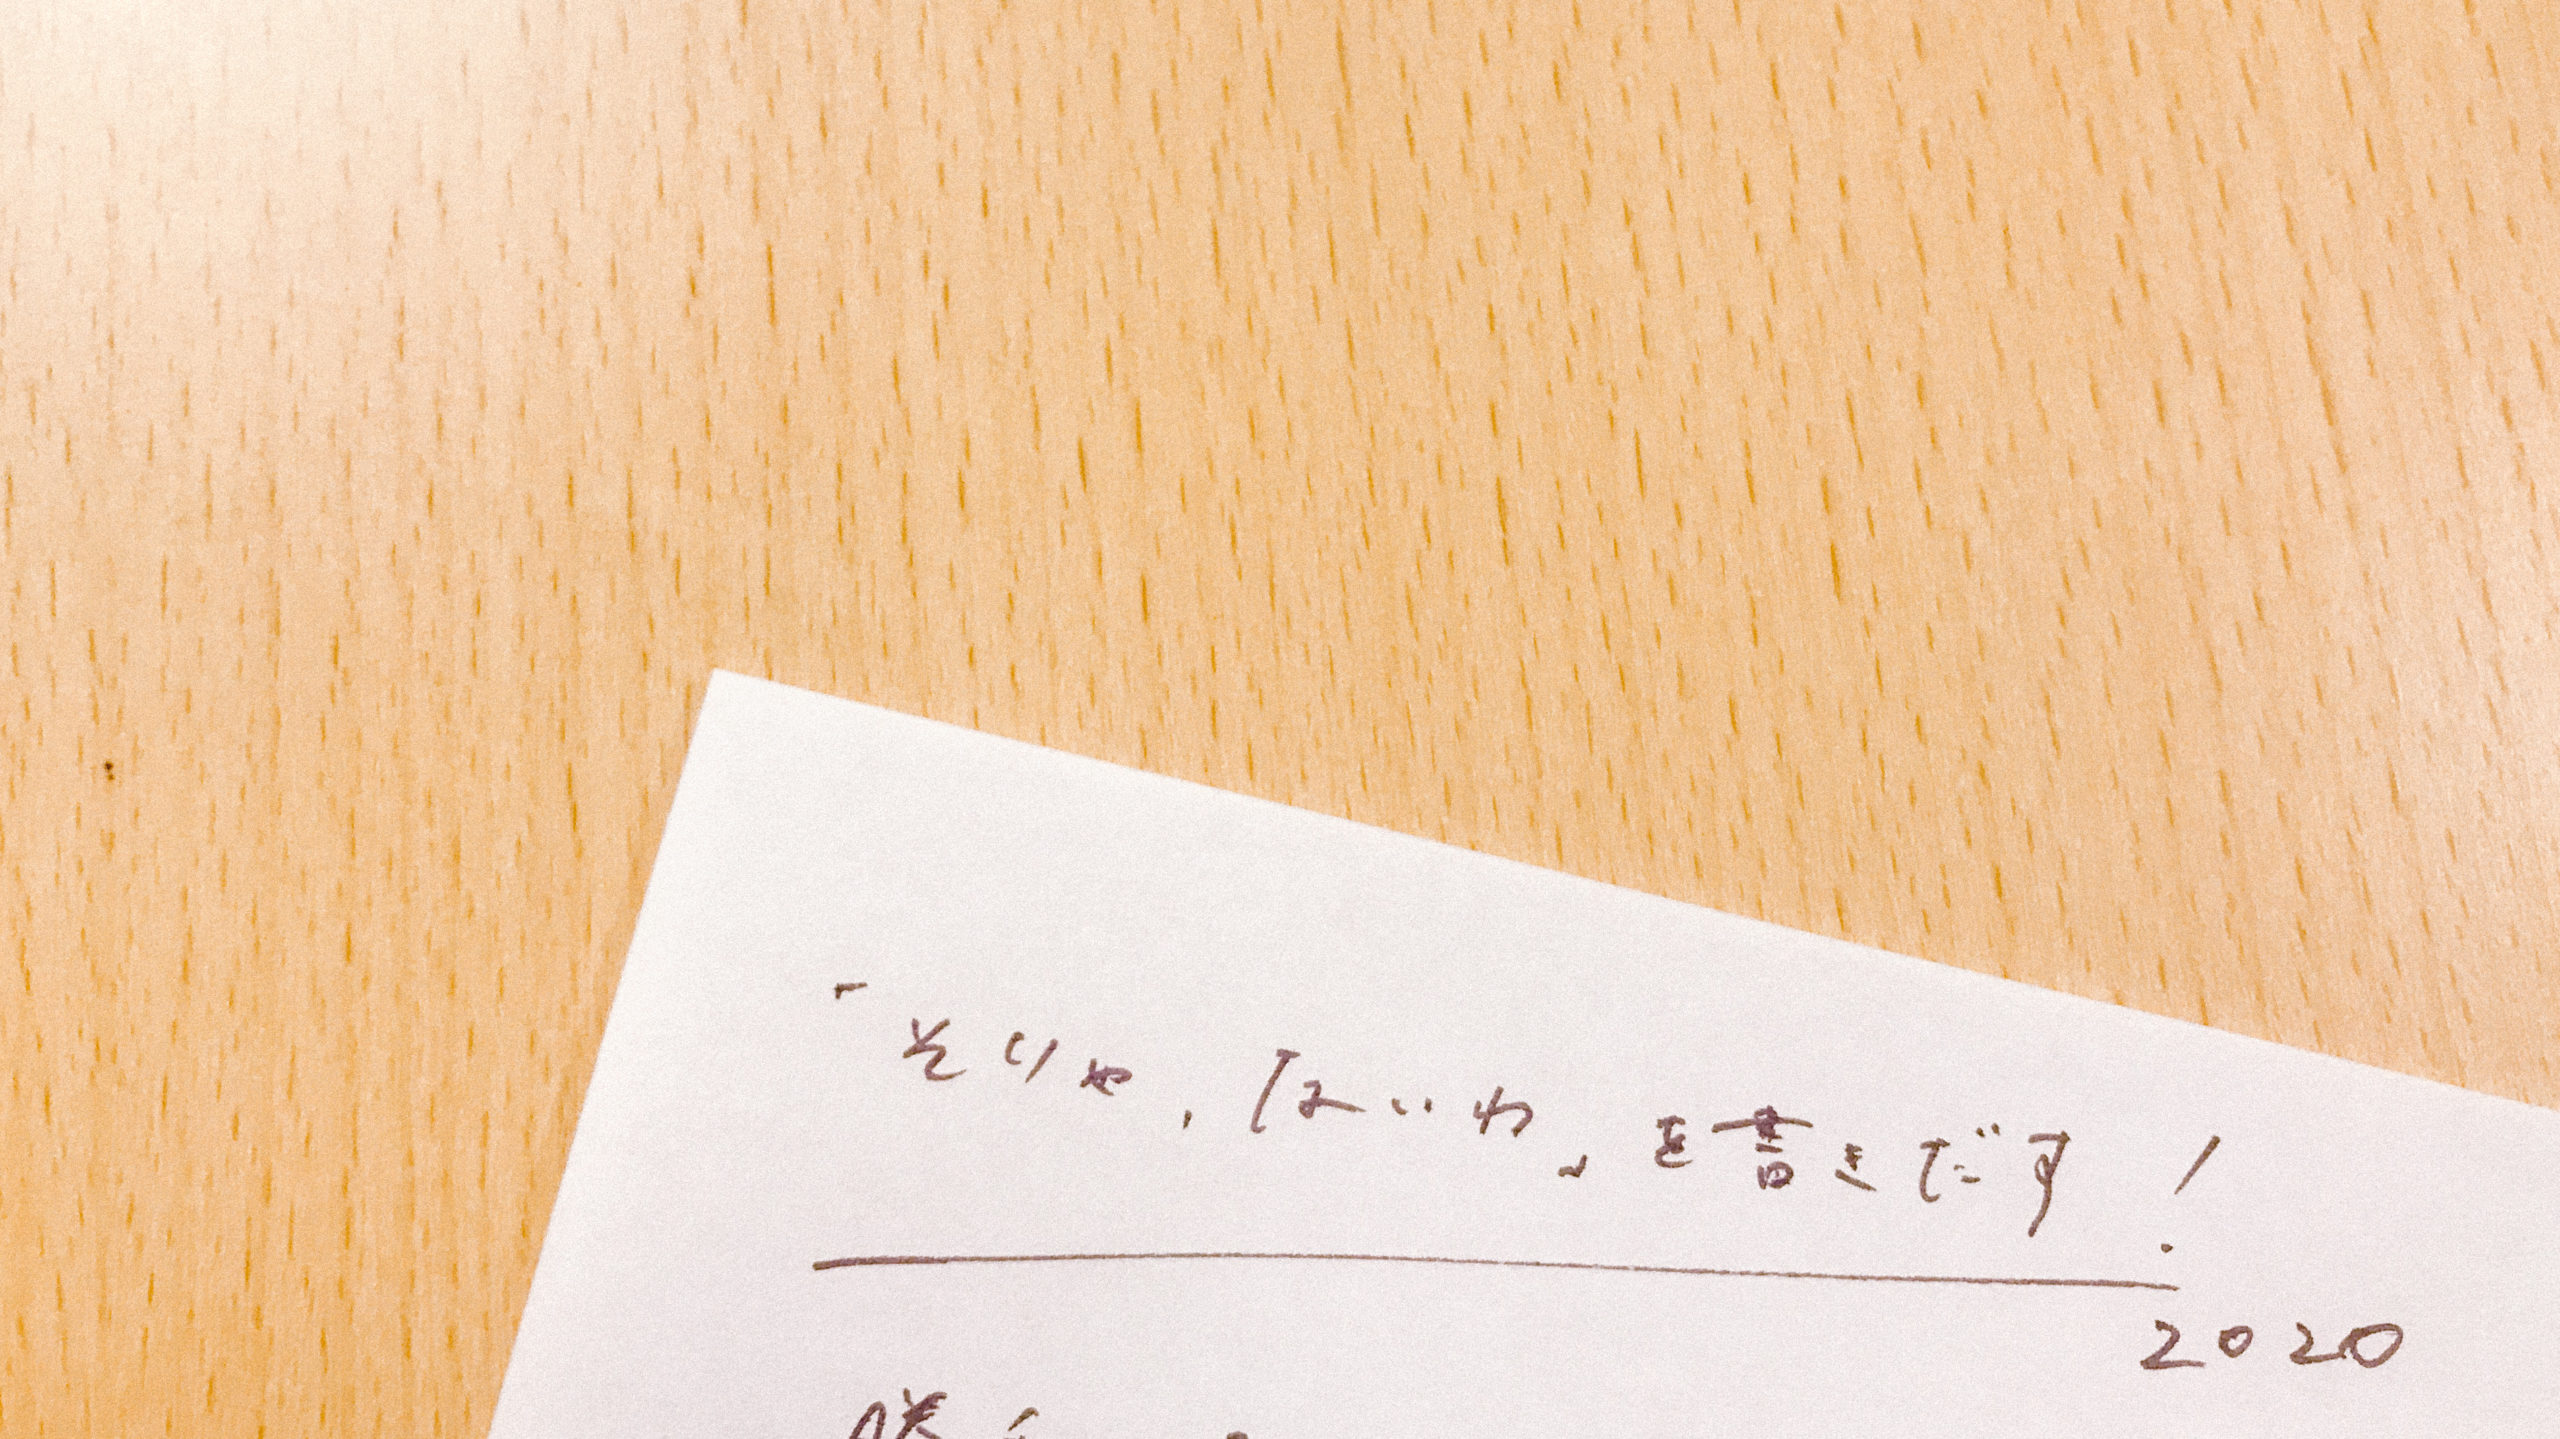 「そりゃ、ないわ」を書きだす！
2020